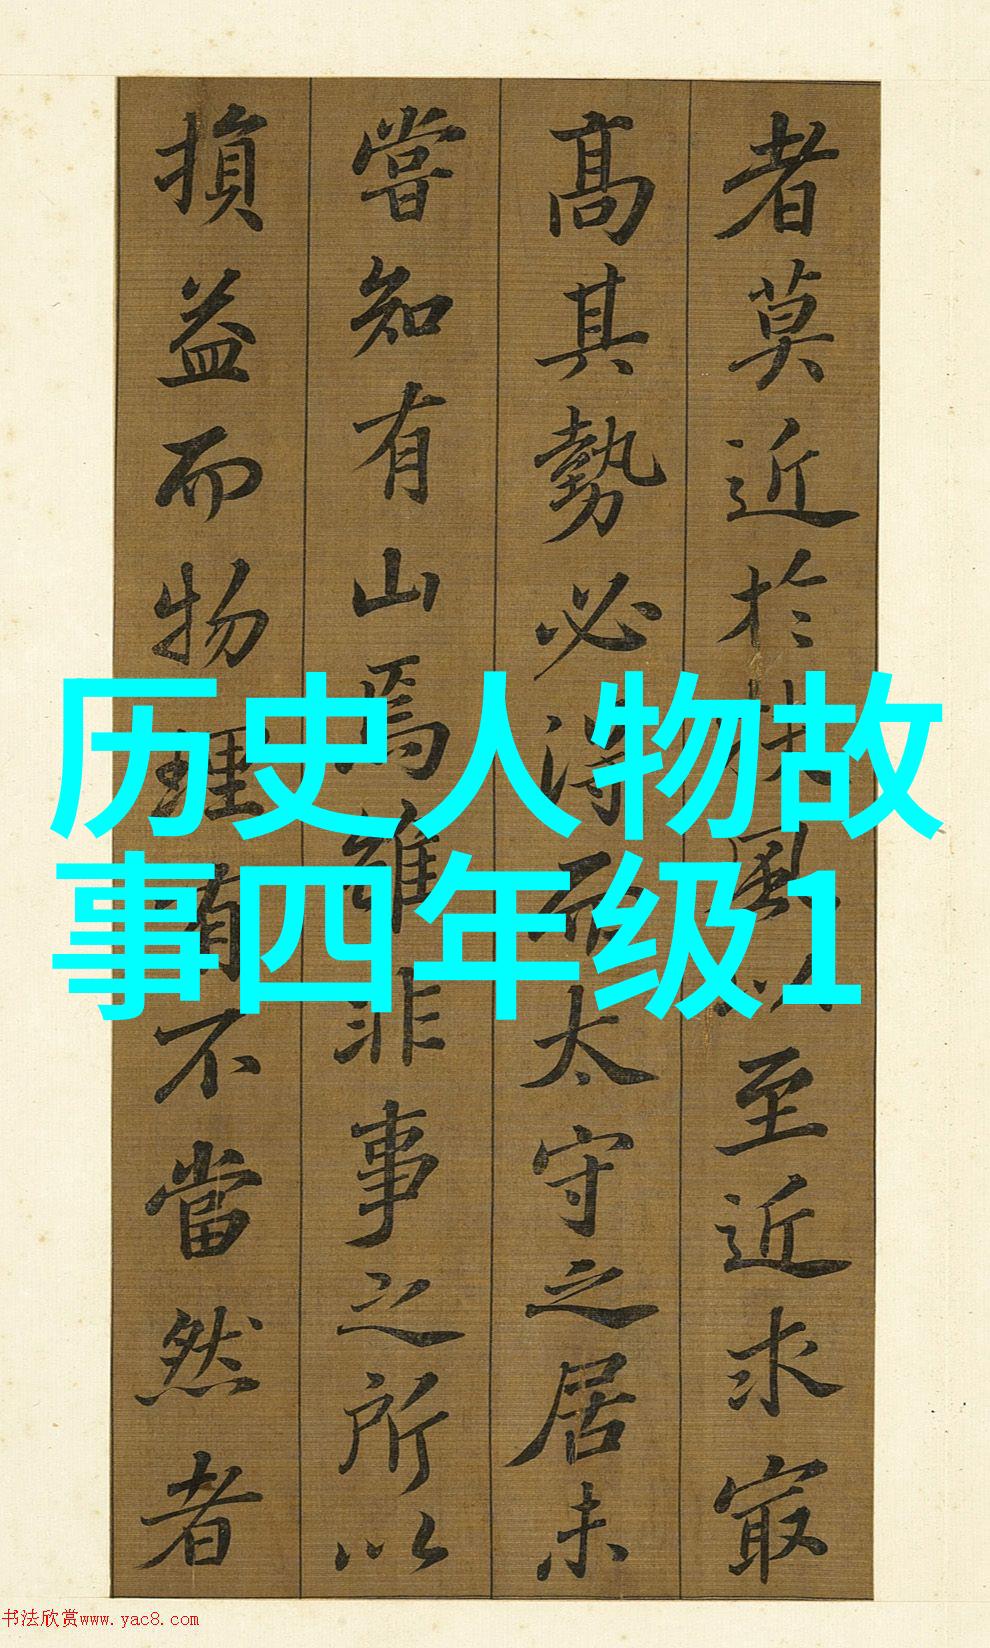 者莫近於扶風以至近求最
高其勢必得而太守之居未
嘗知有山焉雖非事之所以
損益而物理有不當然者
历史人物故
事四年级1
书法欣赏www.yac8.com